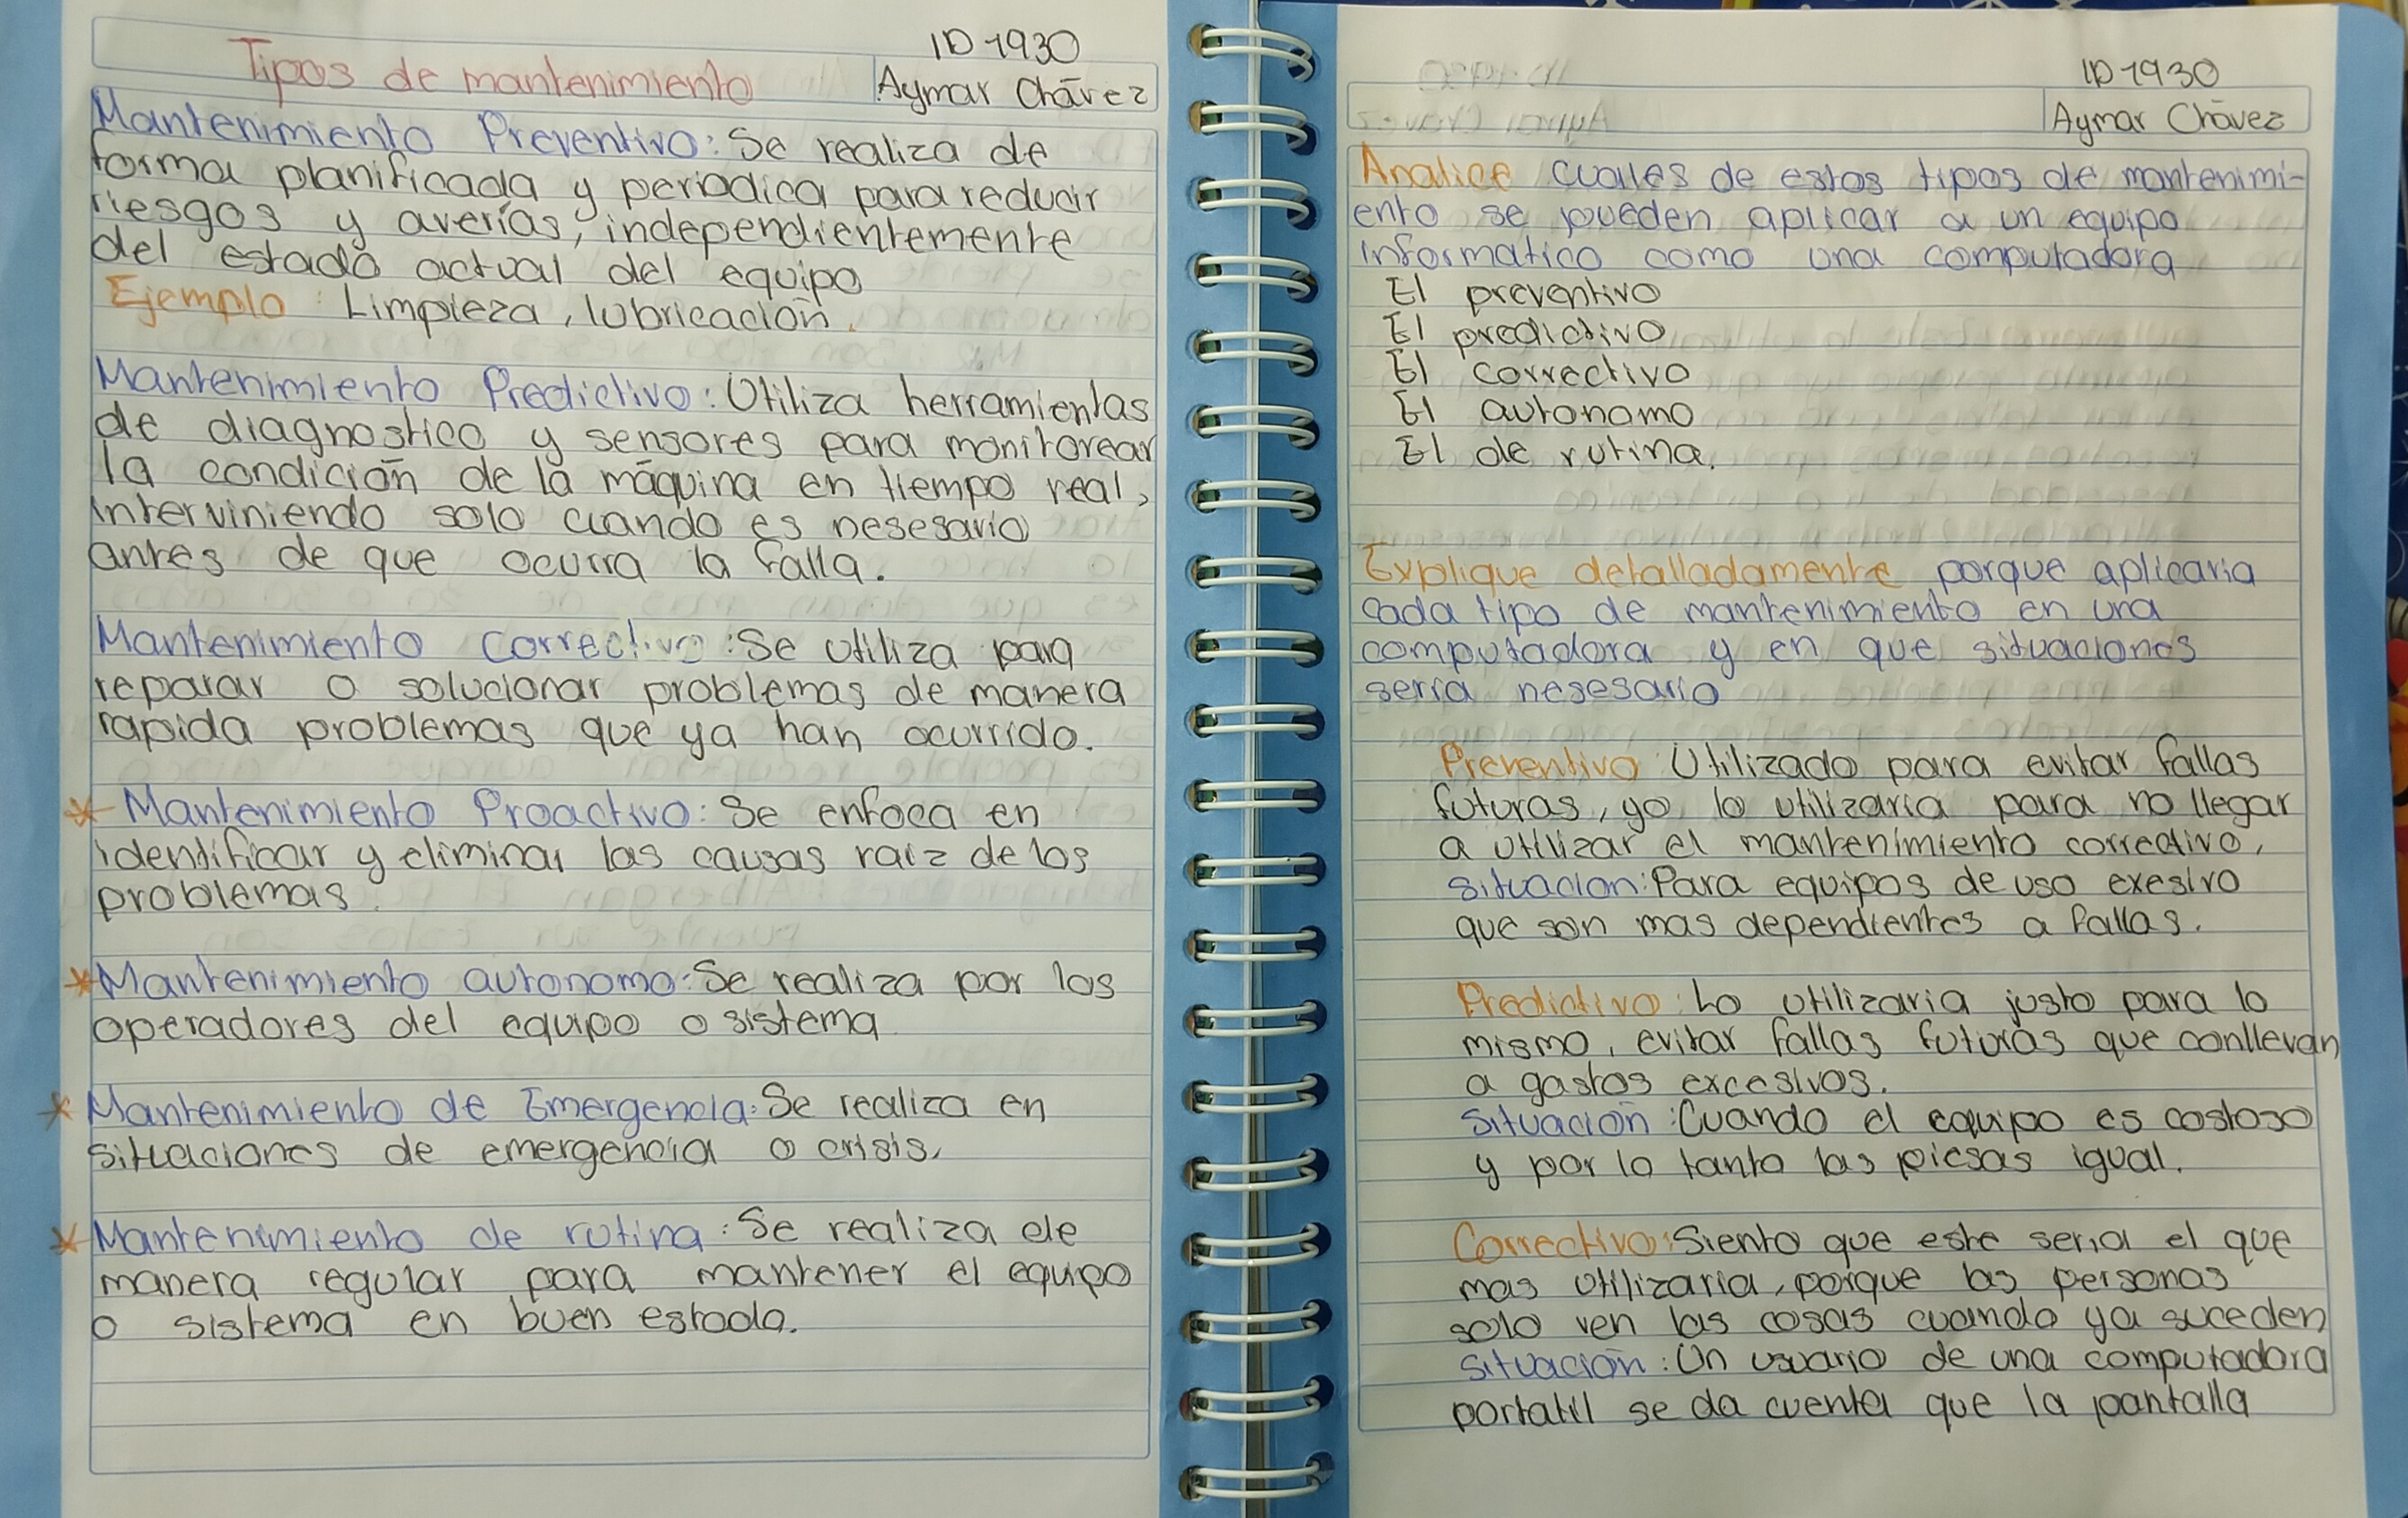 ID 1930
Tipos de mantenimiento
Aymar Chávez
Mantenimiento Preventivo: Se realiza de
forma planificada y periodica para reducir
riesgos y averías, independientemente
del estado actual del equipo
Ejemplo: Limpieza, lubricación.
Mantenimiento Predictivo: Utiliza herramientas
de diagnostico y sensores para monitorear
la condición de la máquina en tiempo real,
interviniendo solo cuando es nesesario
antes de que ocurra la falla.
Mantenimiento Correctivo: Se utiliza para
reparar o solucionar problemas de manera
rapida problemas que ya han ocurrido.
* Mantenimiento Proactivo: Se enfoca en
identificar y eliminar las causas raiz de los
problemas.
* Mantenimiento autonomo: Se realiza por los
operadores del equipo o sistema
* Mantenimiento de Emergencia: Se realiza en
situaciones de emergencia o crisis.
* Mantenimiento de rutina: Se realiza de
manera regular para mantener el equipo
o sistema en buen estado.
ID 1930
Aymar Chávez
Analice cuales de estos tipos de mantenimi-
ento se pueden aplicar a un equipo
informatico como una computadora
El preventivo
El predictivo
El correctivo
El autonomo
El de rutina.
Explique detalladamente porque aplicaria
cada tipo de mantenimiento en una
computadora y en que situaciones
sería nesesario
Preventivo: Utilizado para evitar fallas
futuras, yo lo utilizaría para no llegar
a utilizar el mantenimiento correctivo,
situacion: Para equipos de uso exesivo
que son mas dependientes a fallas.
Predictivo: Lo utilizaria justo para lo
mismo, evitar fallas futuras que conllevan
a gastos excesivos.
Situación: Cuando el equipo es costoso
y por lo tanto las piesas igual.
Correctivo: Siento que este seria el que
mas utilizaria, porque las personas
solo ven las cosas cuando ya suceden
situación: Un usuario de una computadora
portatil se da cuenta que la pantalla